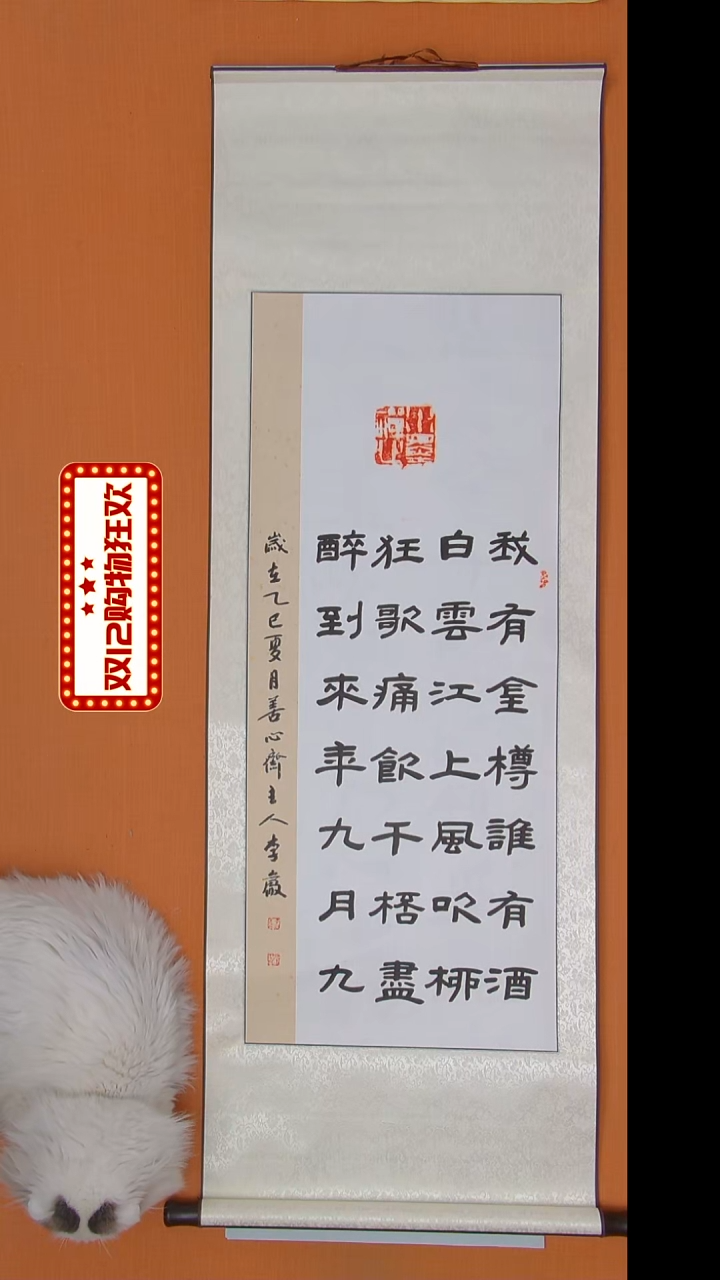 我有金樽誰有酒
白雲江上風吹柳
狂歌痛飲千桮盡
醉到來年九月九
歲在乙巳夏月善心齋主人李
双12购物狂欢